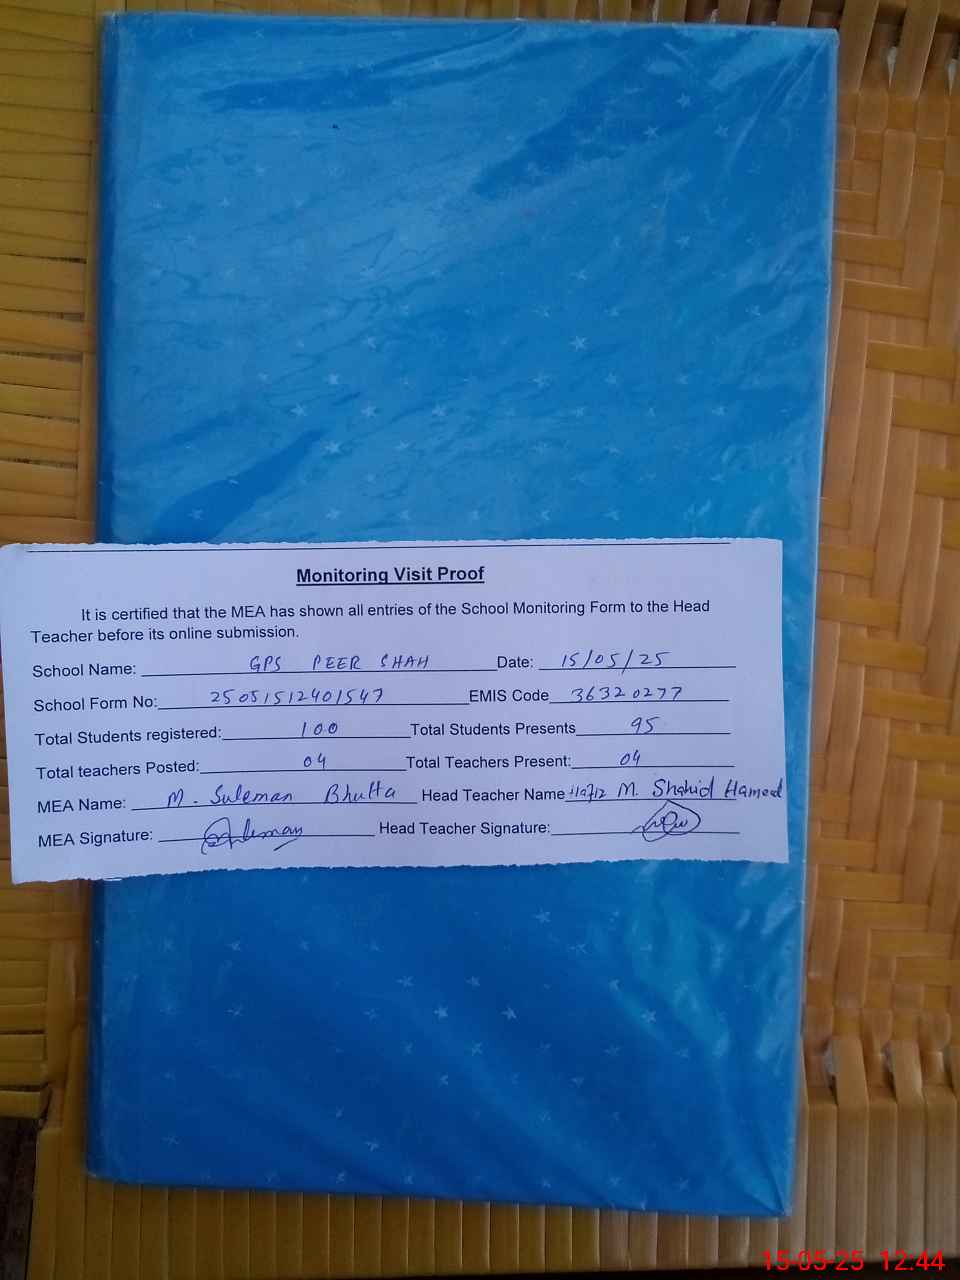 Monitoring Visit Proof
It is certified that the MEA has shown all entries of the School Monitoring Form to the Head
Teacher before its online submission.
School Name: GPS PEER SHAH Date: 15/05/25
School Form No: 25051512401547 EMIS Code 36320277
Total Students registered: 100 Total Students Presents 95
Total teachers Posted: 04 Total Teachers Present: 04
MEA Name: M. Suleman Bhutta Head Teacher Name M. Shahid Hameed
MEA Signature: Head Teacher Signature:
15-05-25 12:44